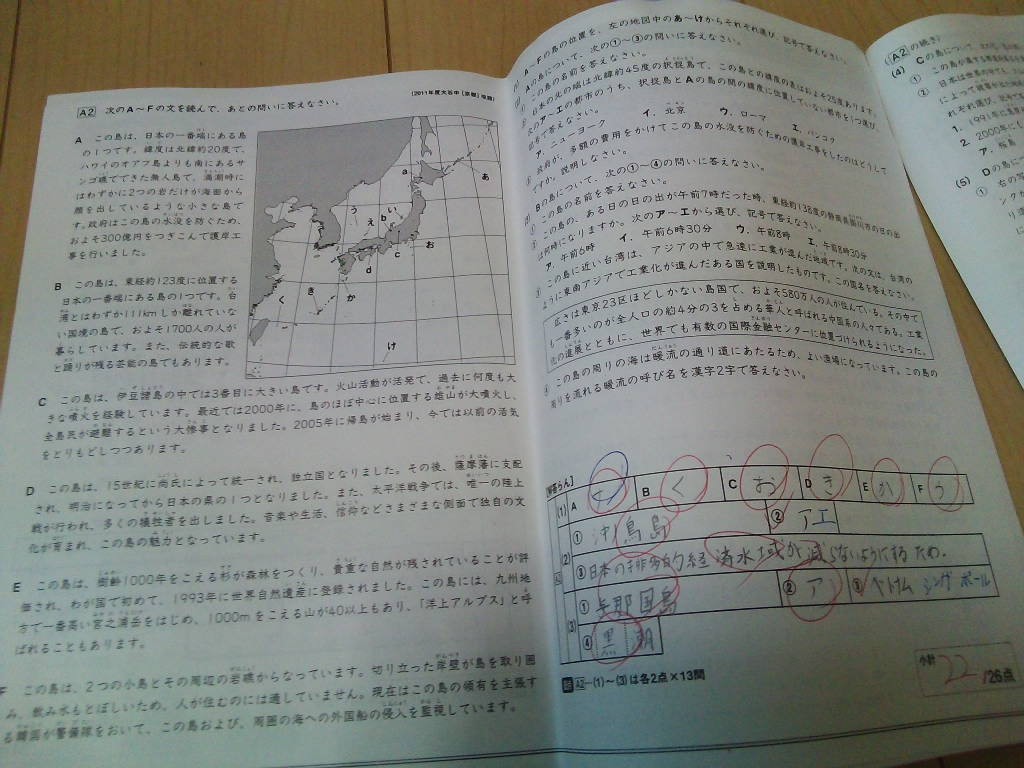 A2 次のA～Fの文を読んで、あとの問いに答えなさい。
(2011年度大谷中〔京都〕改題)
A この島は、日本の一番端にある島
の1つです。緯度は北緯約20度で、
ハワイのオアフ島よりも南にあるサ
ンゴ礁でできた無人島で、満潮時に
はわずかに2つの岩だけが海面から
顔を出しているような小さな島で
す。政府はこの島の水没を防ぐため、
およそ300億円をつぎこんで護岸工
事を行いました。
B この島は、東経約123度に位置する
日本の一番端にある島の1つです。台
湾とはわずか111kmしか離れていな
い国境の島で、およそ1700人の人が
暮らしています。また、伝統的な歌
と踊りが残る芸能の島でもあります。
a
あ
う
い
え
b
お
c
d
か
き
く
け
C この島は、伊豆諸島の中では3番目に大きい島です。火山活動が活発で、過去に何度も大
きな噴火を経験しています。最近では2000年に、島のほぼ中心に位置する雄山が大噴火し、
全島民が避難するという大惨事となりました。2005年に帰島が始まり、今では以前の活気
をとりもどしつつあります。
D この島は、15世紀に尚氏によって統一され、独立国となりました。その後、薩摩藩に支配
され、明治になってから日本の県の1つとなりました。また、太平洋戦争では、唯一の陸上
戦が行われ、多くの犠牲者を出しました。音楽や生活、信仰などさまざまな側面で独自の文
化が育まれ、この島の魅力となっています。
E この島は、樹齢1000年をこえる杉が森林をつくり、貴重な自然が残されていることが評
価され、わが国で初めて、1993年に世界自然遺産に登録されました。この島には、九州地
方で一番高い宮之浦岳をはじめ、1000mをこえる山が40以上もあり、「洋上アルプス」と呼
ばれることもあります。
F この島は、2つの小島とその周辺の岩礁からなっています。切り立った岸壁が島を取り囲
み、飲み水もとぼしいため、人が住むのには適していません。現在はこの島の領有を主張す
る韓国が警備隊をおいて、この島および、周囲の海への外国船の侵入を監視しています。
A～Fの島の位置を、左の地図中のあ～けからそれぞれ選び、記号で答えなさい。
Aの島について、次の①～③の問いに答えなさい。
この島の名前を答えなさい。
日本の北の端は北緯約45度の択捉島で、この島との緯度の差はおよそ25度あります。
次のア～エの都市のうち、択捉島とAの島の間の緯度に位置していない都市を1つ選び、
記号で答えなさい。
ア. ニューヨーク イ. 北京 ウ. ローマ エ. バンコク
政府が、多額の費用をかけてこの島の水没を防ぐための護岸工事をしたのはどうして
ですか。説明しなさい。
Bの島について、次の①～④の問いに答えなさい。
① この島の名前を答えなさい。
② この島の、ある日の日の出が午前7時だった時、東経約138度の静岡県掛川市の日の出
は何時になりますか。次のア～エから選び、記号で答えなさい。
ア. 午前6時 イ. 午前6時30分 ウ. 午前8時 エ. 午前8時30分
③ この島に近い台湾は、アジアの中で急速に工業が進んだ地域です。次の文は、台湾の
ように東南アジアで工業化が進んだある国を説明したものです。この国名を答えなさい。
広さは東京23区ほどしかない島国で、およそ580万人の人が住んでいる。その中で
も一番多いのが全人口の約4分の3を占める華人と呼ばれる中国系の人々である。工業
化の進展とともに、世界でも有数の国際金融センターに位置づけられるようになった。
④ この島の周りの海は暖流の通り道にあたるため、よい漁場になっています。この島の
周りを流れる暖流の呼び名を漢字2字で答えなさい。
[解答らん]
(1) A け B く C お D き E か F う
(2) ① 沖ノ鳥島 ② アエ
③ 日本の排他的経済水域が減らないようにするため.
(3) ① 与那国島 ② ア ③ ベトナム シンガポール
④ 黒潮
A2－(1)～(3)は各2点×13問
小計
22/26点
(A2の続き)
(4) Cの島について、
① この島が属する
② 日本は世界の中でも
によって
1. 1991年に
2. 2000年に
ア. 桜島
(5) Dの島に
① 右の写